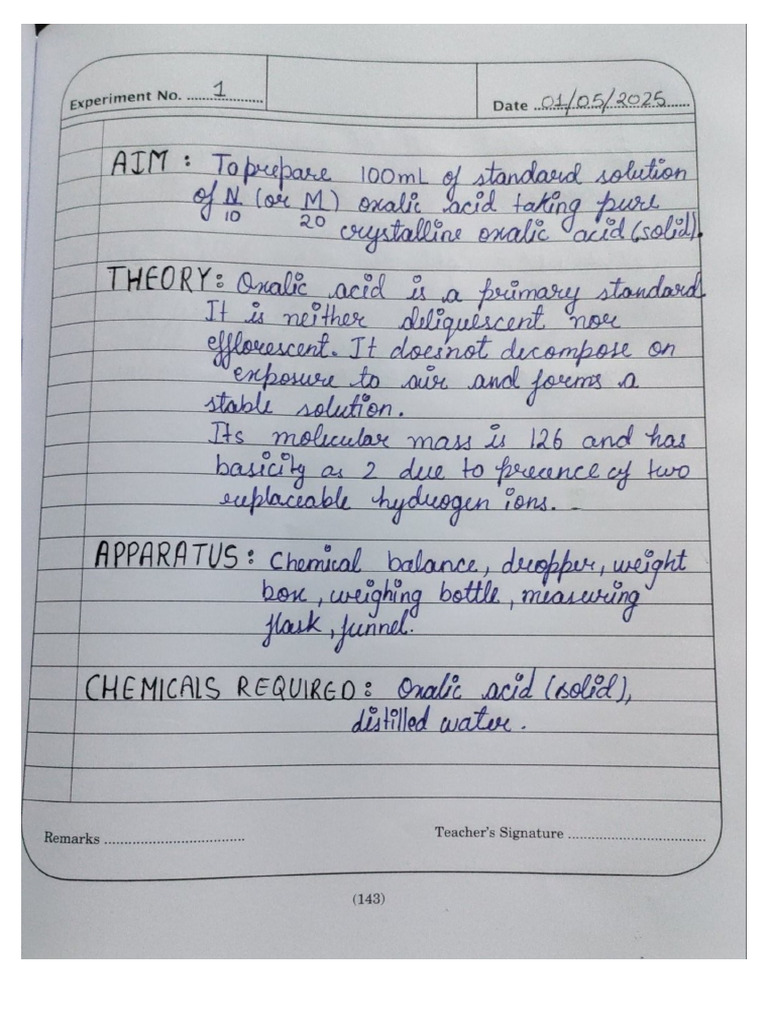 Experiment No. ....1....
Date ..01/05/2025......
AIM : To prepare 100mL of standard solution
of N/10 (or M/20) oxalic acid taking pure
crystalline oxalic acid (solid).
THEORY: Oxalic acid is a primary standard.
It is neither deliquescent nor
efflorescent. It doesnot decompose on
exposure to air and forms a
stable solution.
Its molecular mass is 126 and has
basicity as 2 due to precence of two
replaceable hydrogen ions.
APPARATUS: Chemical balance, dropper, weight
box, weighing bottle, measuring
flask, funnel.
CHEMICALS REQUIRED: Oxalic acid (solid),
distilled water.
Remarks ...................................
Teacher's Signature ...................................
(143)